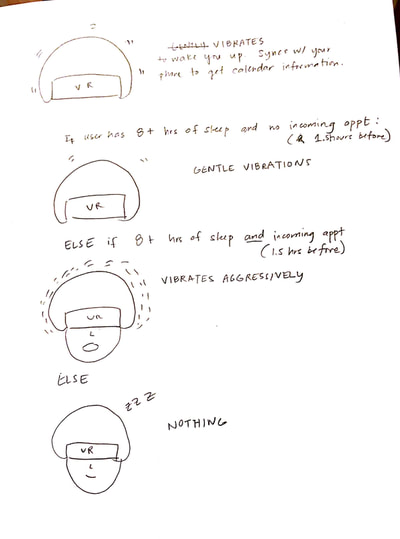 VIBRATES
to wake you up. Syncs w/ your
phone to get calendar information.
VR
If user has 8+ hrs of sleep and no incoming appt:
(& 1.5 hours before)
GENTLE VIBRATIONS
VR
ELSE if 8+ hrs of sleep and incoming appt
(1.5 hrs before)
VIBRATES AGGRESSIVELY
VR
ELSE
zzz
NOTHING
VR